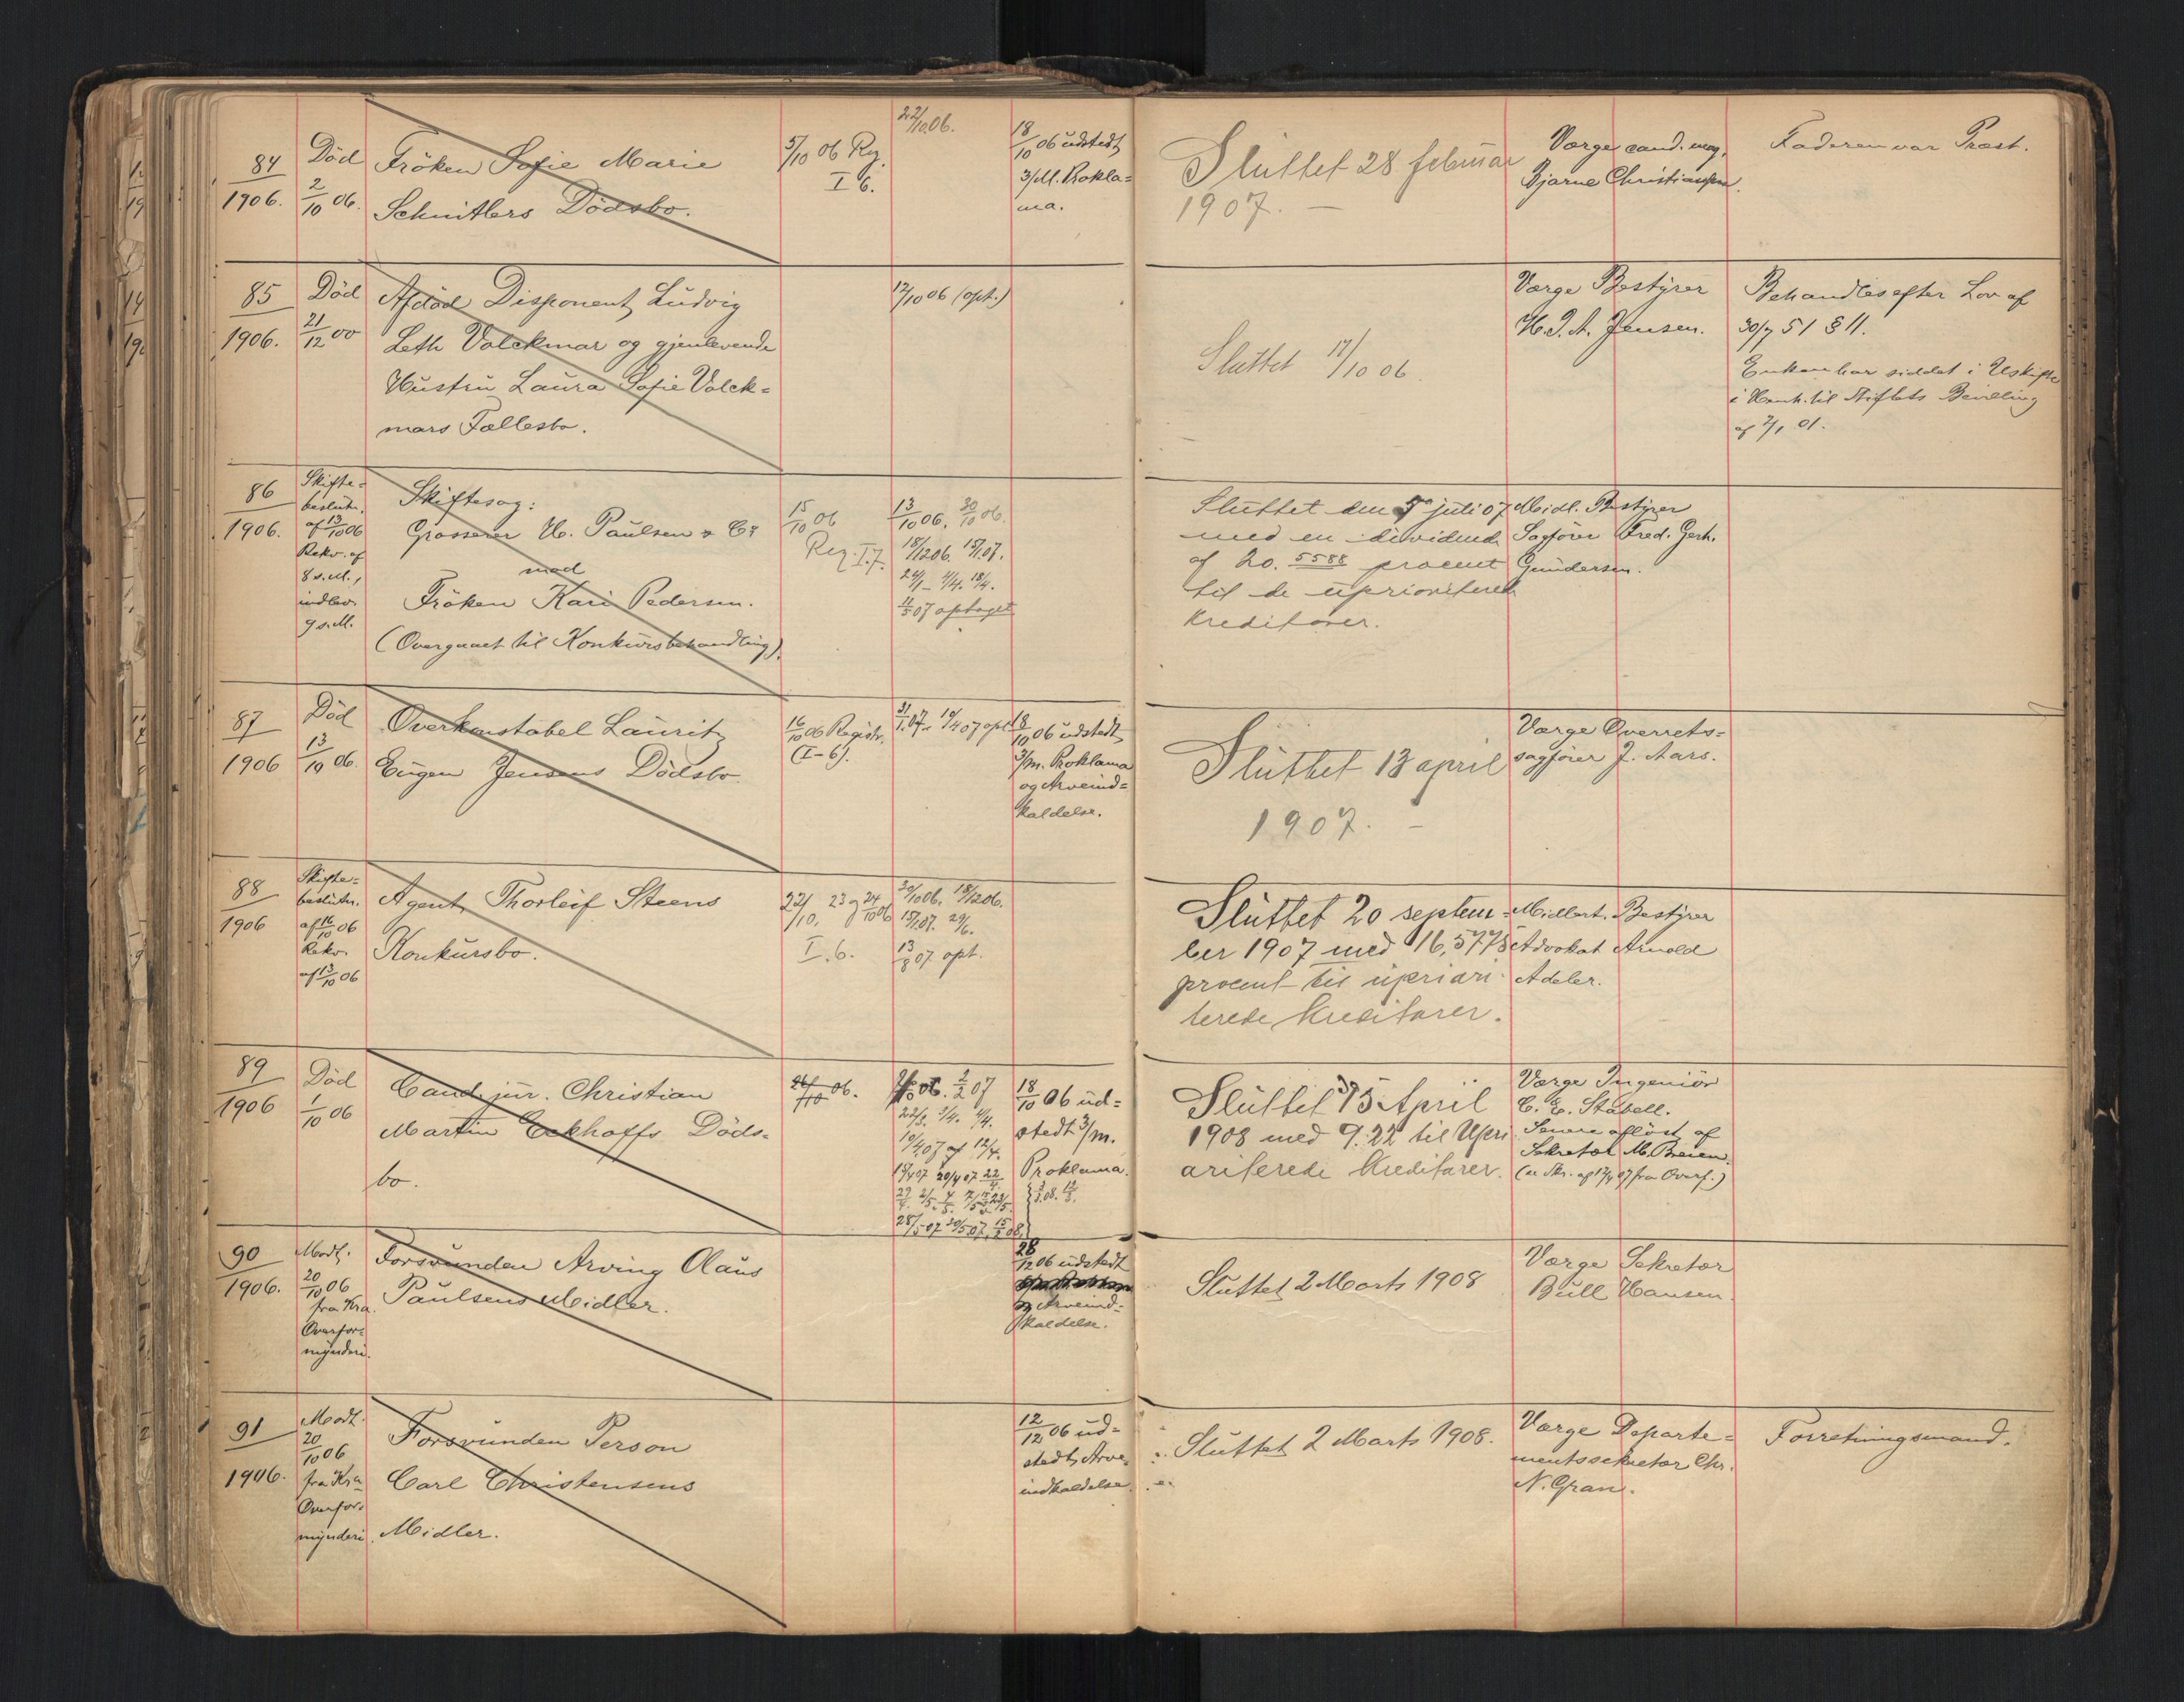 84
1906.
Död
2/10 06.
Fröken Sofie Marie
Schnitlers Dödsbo.
5/10 06 Reg.
I 6.
22/10.06.
18/10 06 udstedt
3/M. Prokla=
ma.
Sluttet 28 februar
1907. —
Værge cand. mag.
Bjarne Christiansen.
Faderen var Præst.
85
1906.
Död
21/12 00
Afdöd Disponent Ludvig
Leth Volckmar og gjenlevende
Hustru Laura Sofie Volck=
mars Fællesbo.
12/10 06 (opt.)
Sluttet 17/10 06
Værge Bestyrer
H. J. A. Jensen.
Behandles efter Lov af
30/7 51 § 11.
Enken har siddet i Uskifte
i Henh. til Stiftets Bevilling
af 7/1 01.
86
1906.
Skifte=
beslutn.
af 13/10 06
Rekv. af
8 s. M.,
indlev.
9 s. M.
Skiftesag:
Grosserer H. Paulsen & Co
mod
Fröken Kari Pedersen.
(Overgaaet til Konkursbehandling).
15/10 06
Reg. I. 7.
13/10 06. 30/10 06.
18/12 06. 15/1 07.
24/1 - 4/4. 18/4.
11/5 07 optaget
Sluttet den 5 juli 07
med en dividende
af 20.5588 procent
til de uprioriterede
kreditorer.
Midl. Bestyrer
Sagförer Fred. Gerh.
Gundersen.
87
1906
Död
13/10 06.
Overkonstabel Lauritz
Eugen Jensens Dödsbo.
16/10 06 Registr.
(I-6).
31/1. 07. 10/4 07 opt.
18/10 06 udstedt
3/m. Proklama
og Arveind=
kaldelse.
Sluttet 13 april
1907. —
Værge Overrets=
sagförer J. Aars.
88
1906
Skifte=
beslutn.
af 16/10 06
Rekv.
af 13/10 06
Agent Thorleif Steens
Konkursbo.
22/10. 23 og 24/10 06
I. 6.
30/10 06. 18/12 06.
15/1 07. 29/6.
13/8 07 opt.
Sluttet 20 septem=
ber 1907 med 16,5775
procent til upriori=
terede kreditorer.
Midlert. Bestyrer
Advokat Arnold
Adeler.
89
1906
Död
1/10 06
Cand. jur. Christian
Martin Eckhoffs Döds=
bo.
26/10 06.
2/2 07
22/3. 3/4. 4/4.
10/4 07 af 12/4.
20/4 07 22/4.
28/5 07 30/5 07. 15/2 08.
18/10 06 ud=
stedt 3/m.
Proklama.
Sluttet 15 April
1908 med 9.22 til Upri
oriterede Kreditorer.
Værge Ingeniör
C. E. Stabell.
Senere aflöst af
Sekretær M. Breien.
(se Skr. af 17/4 07 fra Overf.)
90
1906.
Modt.
20/10 06
fra Kra.
Overfor=
mynderi.
Forsvunden Arving Olaus
Paulsens Midler.
28/12 06 udstedt
og Arveind=
kaldelse.
Sluttet 2 Marts 1908
Værge Sekretær
Bull Hansen.
91
1906.
Modt.
20/10 06
fra Kra
Overfor=
mynderi.
Forsvunden Person
Carl Christensens
Midler.
12/12 06 ud=
stedt Arve=
indkaldelse.
Sluttet 2 Marts 1908.
Værge Departe=
mentssekretær Chr.
N. Gran.
Forretningsmand.